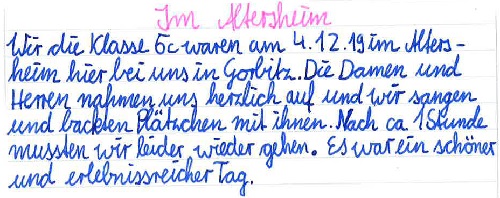 Im Altersheim
Wir die Klasse 6c waren am 4.12.19 im Alters-
heim hier bei uns in Gorbitz. Die Damen und
Herren nahmen uns herzlich auf und wir sangen
und backten Plätzchen mit ihnen. Nach ca. 1 Stunde
mussten wir leider wieder gehen. Es war ein schöner
und erlebnissreicher Tag.